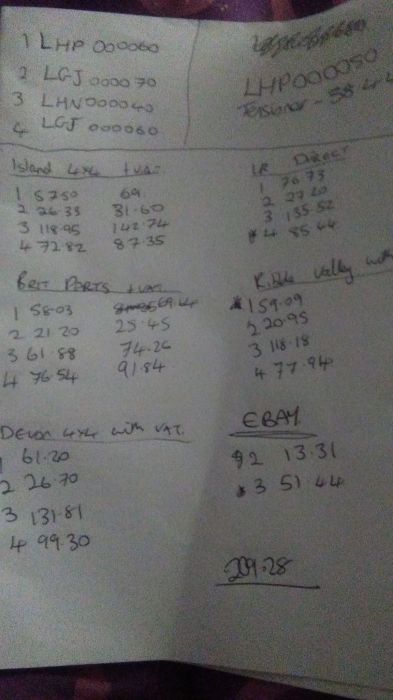 1 LHP 000060
2 LGJ 000070
3 LHN000040
4 LGJ 000060
LHP000050
Tensioner - 38.44
Island 4x4 +VAT
1 57.50 69.
2 26.33 31.60
3 118.95 142.74
4 72.82 87.35
LR Direct
1 76.73
2 27.20
3 135.52
* 4 85.44
Brit Parts +VAT
1 58.03 69.64
2 21.20 25.45
3 61.88 74.26
4 76.54 91.84
Ribble Valley with
* 1 59.09
2 20.95
3 118.18
4 77.94
Devon 4x4 with VAT.
1 61.20
2 26.70
3 131.81
4 99.30
EBAY
* 2 13.31
* 3 51.44
209.28